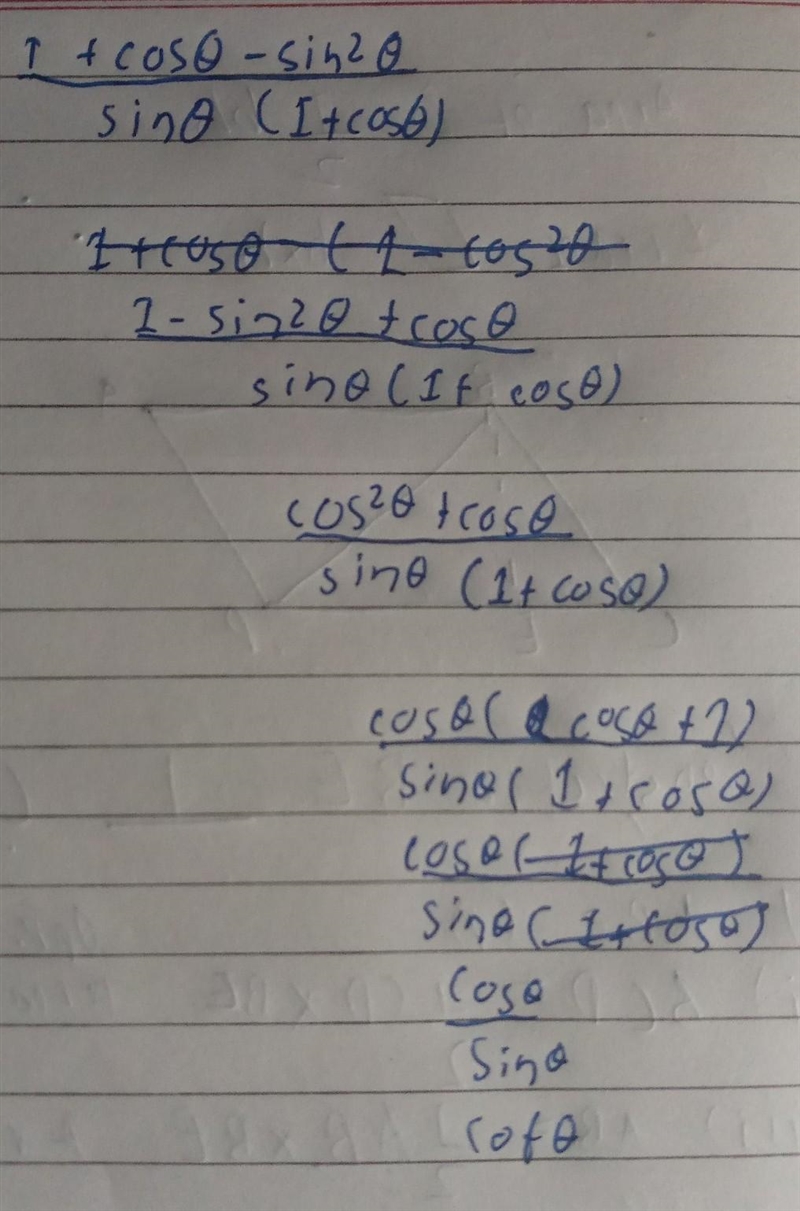 1 + cosθ - sin2θ
sinθ (1+cosθ)
1+cosθ - (1 - cos²θ
1 - sin2θ + cosθ
sinθ (1+ cosθ)
cos²θ + cosθ
sinθ (1+ cosθ)
cosθ ( cosθ +1)
sinθ ( 1 + cosθ)
cosθ ( 1+cosθ )
sinθ ( 1+cosθ)
cosθ
sinθ
cotθ